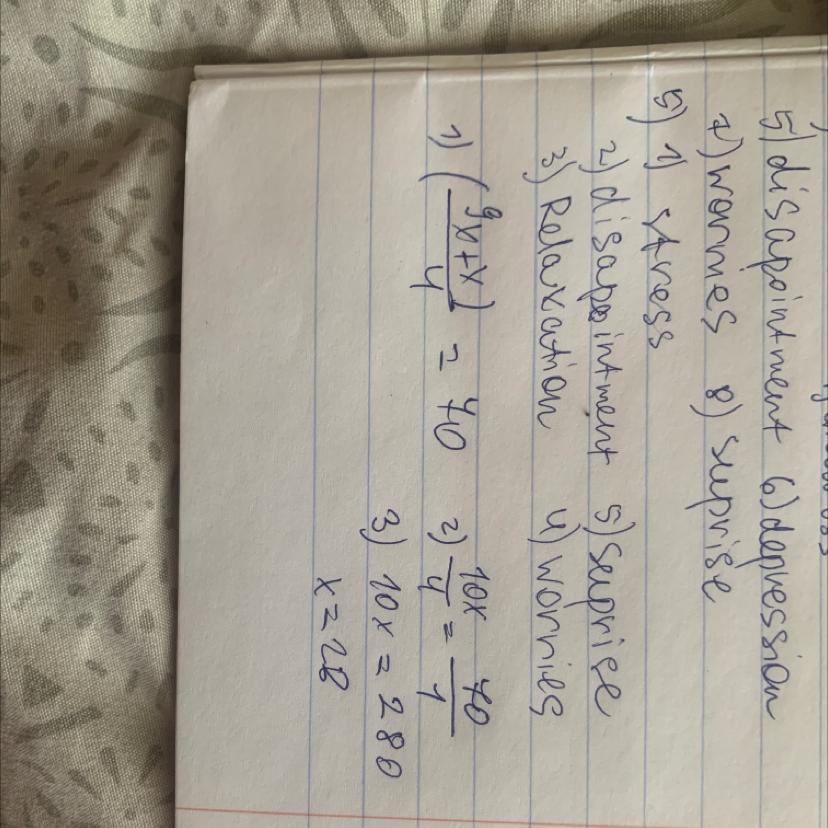 5) disapointment 6) depression
7) worries 8) suprise
5) 1) stress
2) disapointment 5) suprise
3) Relaxation 4) worries
1) (9x+x)/4 = 70 2) 10x/4 = 70/1
3) 10x = 280
x = 28